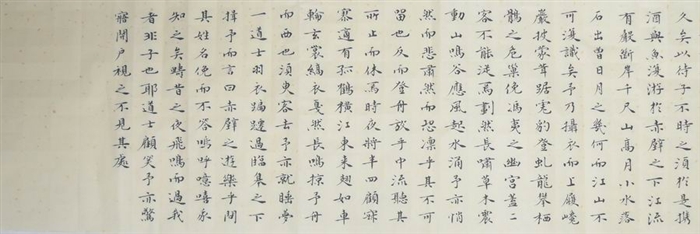 久矣以待子不時之須於是攜
酒與魚復游於赤壁之下江流
有聲斷岸千尺山高月小水落
石出曾日月之幾何而江山不
可復識矣予乃攝衣而上履巉
巖披蒙茸踞虎豹登虬龍攀栖
鶻之危巢俯馮夷之幽宮蓋二
客不能從焉劃然長嘯草木震
動山鳴谷應風起水涌予亦悄
然而悲肅然而恐凜乎其不可
留也反而登舟放乎中流聽其
所止而休焉時夜將半四顧寂
寥適有孤鶴橫江東來翅如車
輪玄裳縞衣戛然長鳴掠予舟
而西也須臾客去予亦就睡夢
一道士羽衣蹁躚過臨皋之下
揖予而言曰赤壁之遊樂乎問
其姓名俛而不答嗚呼噫嘻我
知之矣疇昔之夜飛鳴而過我
者非子也耶道士顧笑予亦驚
寤開戶視之不見其處